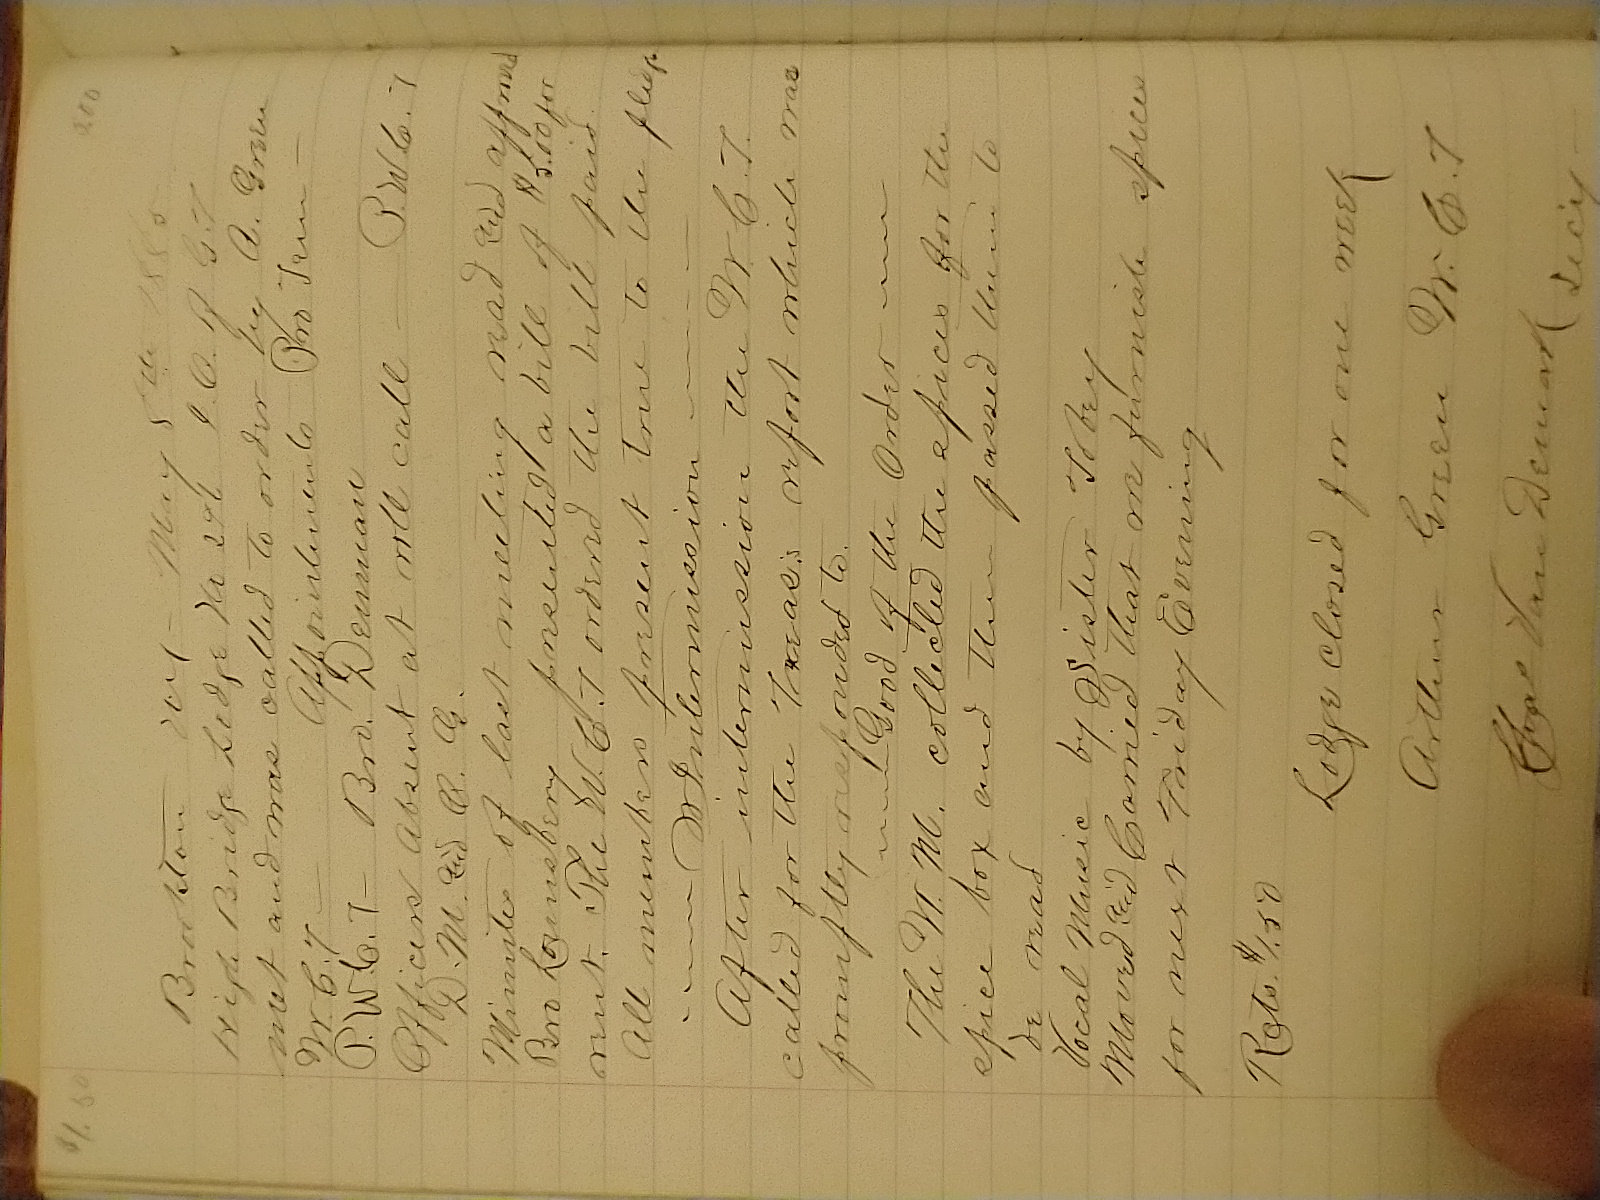 $1.50
200
Brookton NY - May 8th 1885
High Bridge Lodge No 296 I.O. of G.T
met and was called to order by A. Green
W.C.T — Appointments Pro Tem —
P.W.C.T — Bro. Denman
Officers Absent at roll call — P.W.C.T
D.M. and O.G.
Minutes of last meeting read and approved
Bro Lounsbery presented a bill of $5.00 for
rent. The W.C.T ordered the bill paid.
All members present true to the pledge
Intermission
After intermission the W.C.T.
called for the Treas's report which was
promptly responded to.
Good of the Order
The W.M. collected the spices for the
spice box and then passed them to
be read
Vocal Music by Sister Tobey
Moved and Carried that we furnish spices
for next Friday Evening
Rcts. $1.50
Lodge closed for one week
Arthur Green W.C.T
Chas Van Demark Secy —